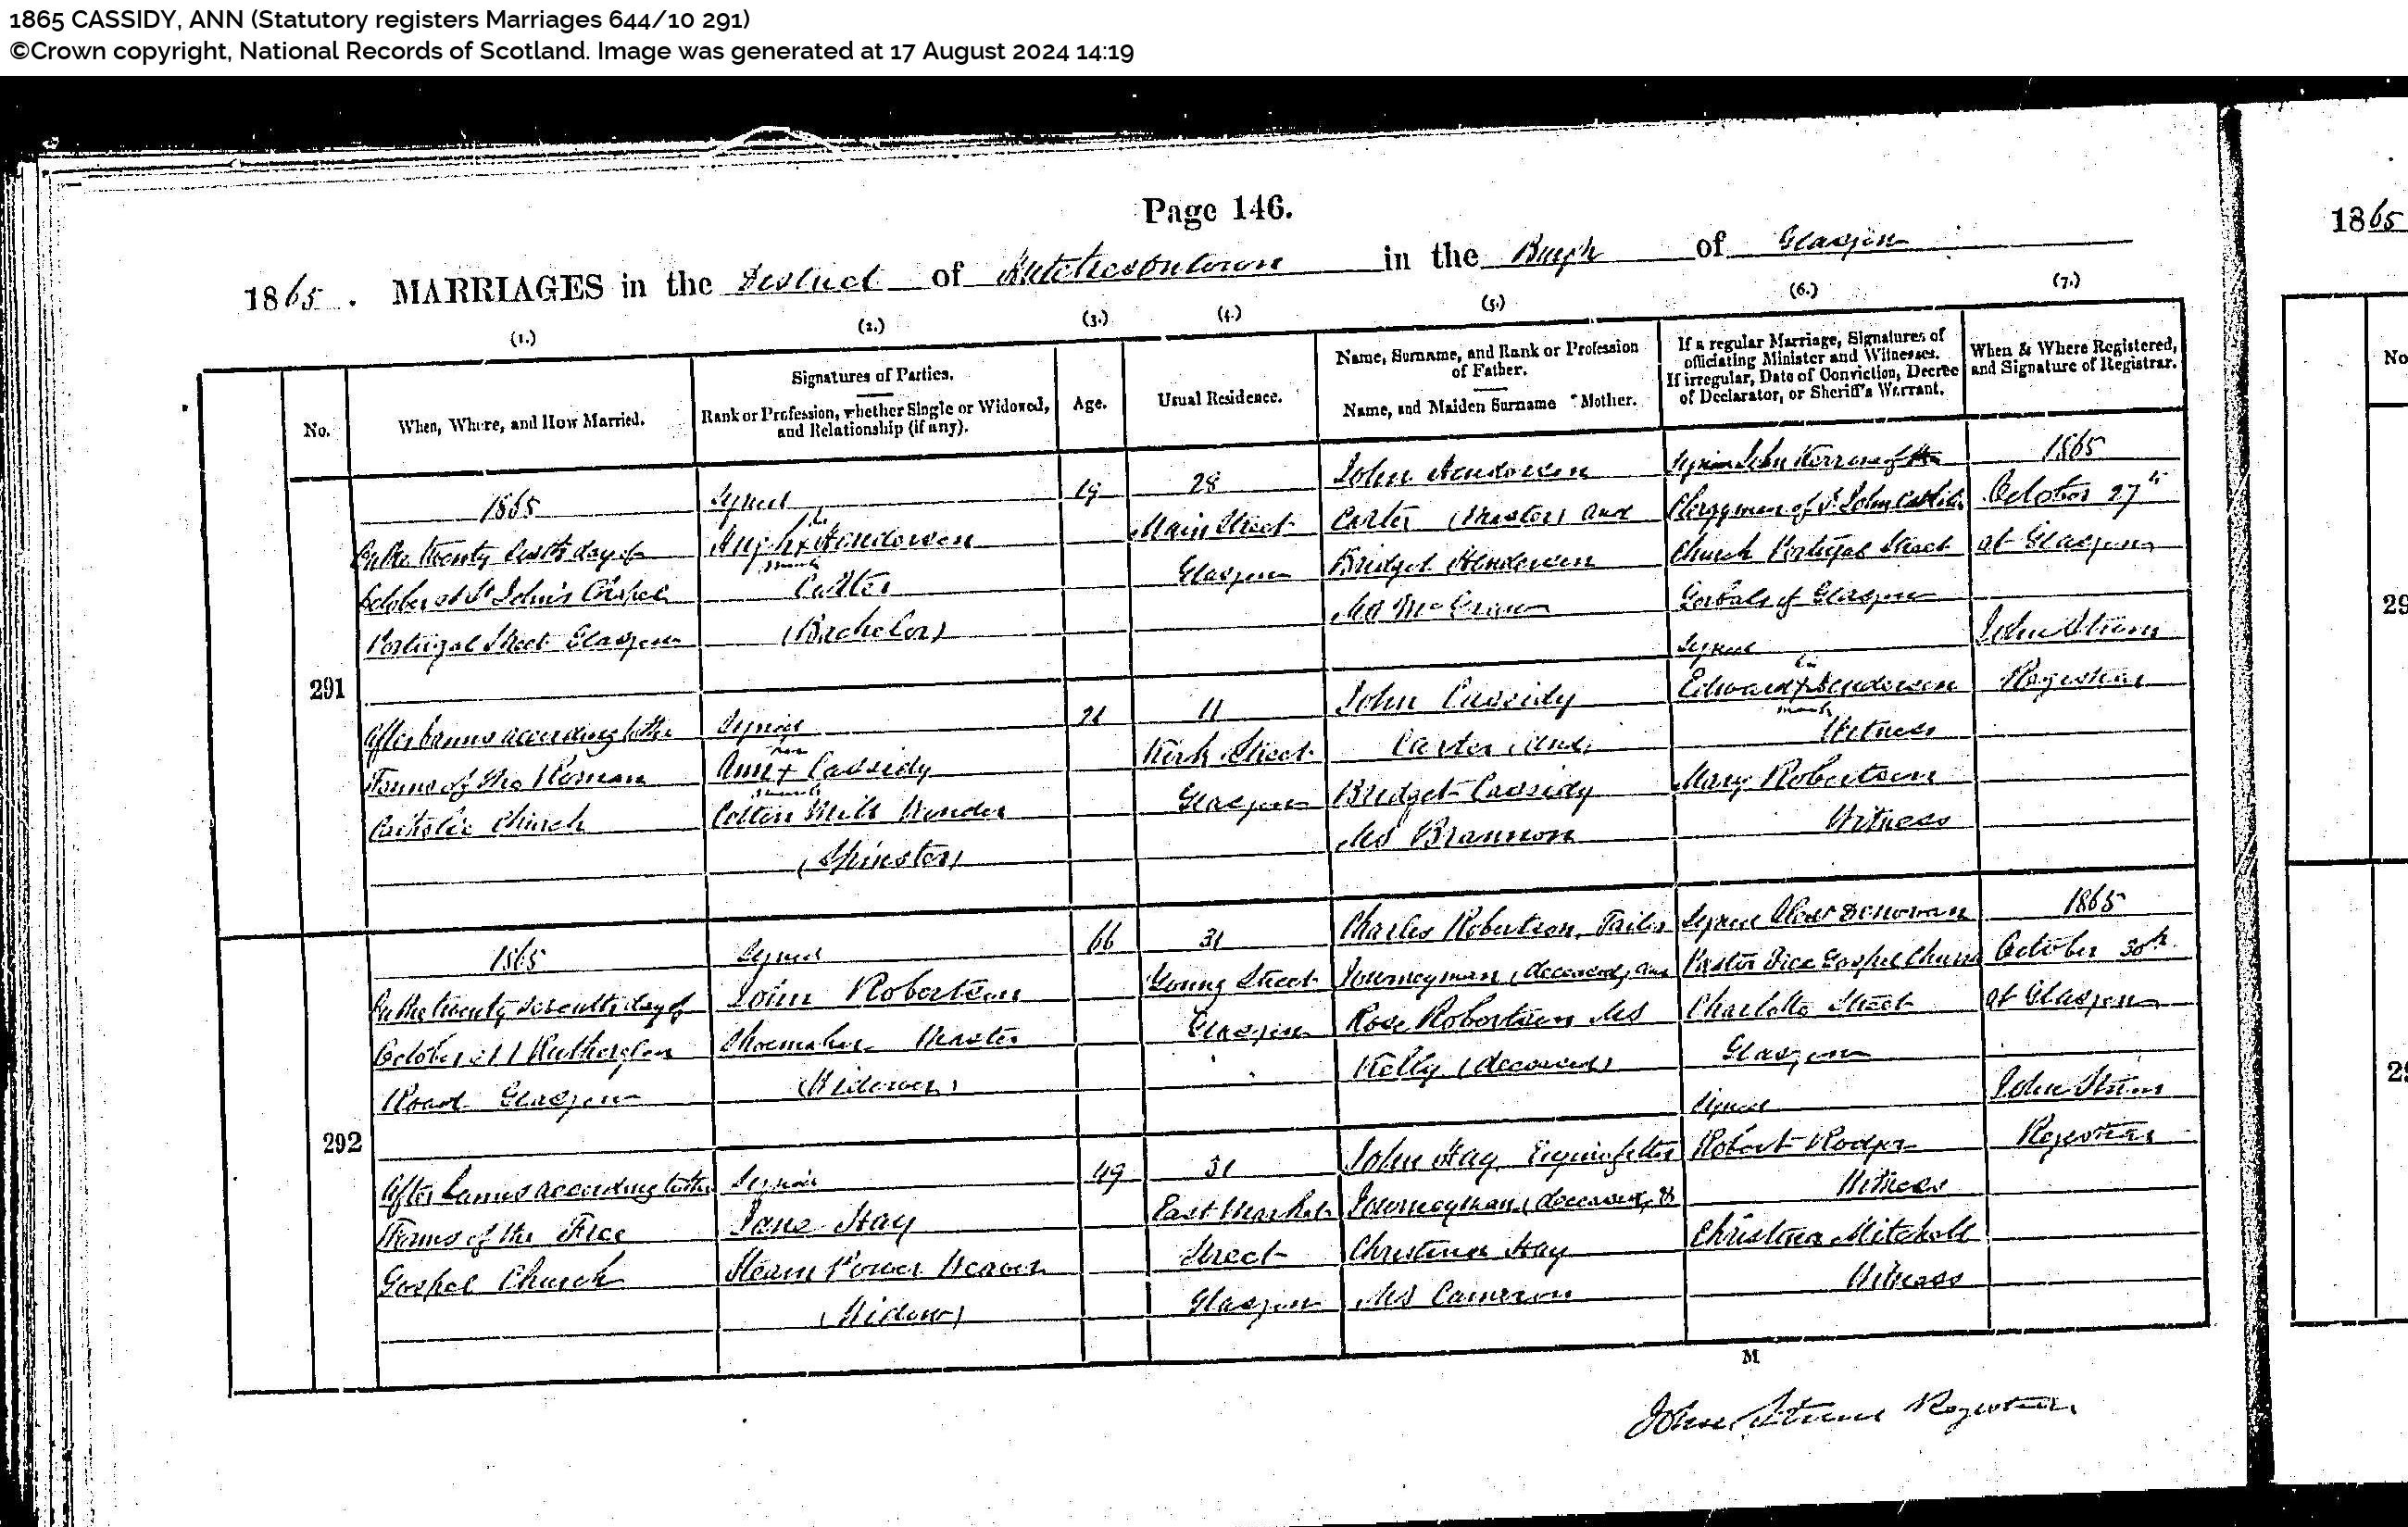 1865 CASSIDY, ANN (Statutory registers Marriages 644/10 291)
©Crown copyright, National Records of Scotland. Image was generated at 17 August 2024 14:19
Page 146.
1865. MARRIAGES in the District of Hutchesontown in the Burgh of Glasgow
1865
(1.) (2.) (3.) (4.) (5.) (6.) (7.)
No.
When, Where, and How Married.
Signatures of Parties.
Rank or Profession, whether Single or Widowed,
and Relationship (if any).
Age.
Usual Residence.
Name, Surname, and Rank or Profession
of Father.
Name, and Maiden Surname Mother.
If a regular Marriage, Signatures of
officiating Minister and Witnesses.
If irregular, Date of Conviction, Decree
of Declarator, or Sheriff's Warrant.
When & Where Registered,
and Signature of Registrar.
No
291
1865
On the twenty sixth day of
October at St John's Chapel
Portugal Street Glasgow
After banns according to the
Forms of the Roman
Catholic Church
Signed
his
Hugh x Henderson
mark
Carter
(Bachelor)
Signed
her
Ann x Cassidy
mark
Cotton Mill Winder
(Spinster)
19
21
28
Main Street
Glasgow
11
Kirk Street
Glasgow
John Henderson
Carter (Master) and
Bridget Henderson
MS
John Cassidy
Carter and
Bridget Cassidy
MS Brannon
Signed John
Clergyman of St John Catholic
Church Portugal Street
Gorbals of Glasgow
Signed
his
Edward x Henderson
mark
Witness
Mary Robertson
Witness
1865
October 27th
at Glasgow
John
Registrar
29
292
1865
On the twenty seventh day of
October at 1 Rutherglen
Road Glasgow
After banns according to the
Forms of the Free
Gospel Church
Signed
John Robertson
Shoemaker Master
(Widower)
Signed
Jane Hay
Steam Power Weaver
(Widow)
66
49
31
Young Street
Glasgow
31
East Market
Street
Glasgow
Charles Robertson, Tailor
Journeyman (deceased) and
Rose Robertson MS
Kelly (deceased)
John Hay Enginefitter
Journeyman (deceased) &
Christina Hay
MS Cameron
Signed Alexr Denovan
Pastor Free Gospel Church
Charlotte Street
Glasgow
Signed
Robert Rodger
Witness
Christina Mitchell
Witness
1865
October 30th
at Glasgow
John
Registrar
29
M
John Registrar